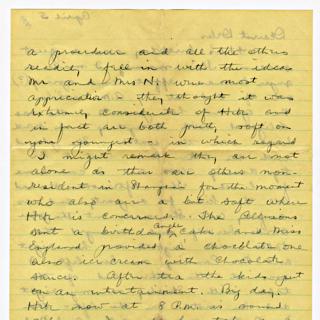 a procedure and all the others
readily fell in with the ideas
Mr. and Mrs N. were most
appreciative - they thought it was
extremely considerate of Hitz and
in fact are both pretty soft on
your youngest - in which regard
I might remark they are not
alone as there are others now
resident in Shanghai for the moment
who also are a bit soft where
Hitz is concerned. The Allisons
sent a birthday Angel Cake and Miss
England provided a chocolate one
also ice cream with chocolate
sauce. After tea the kids put
on an entertainment. Big day.
now at 8 P.M. is sound